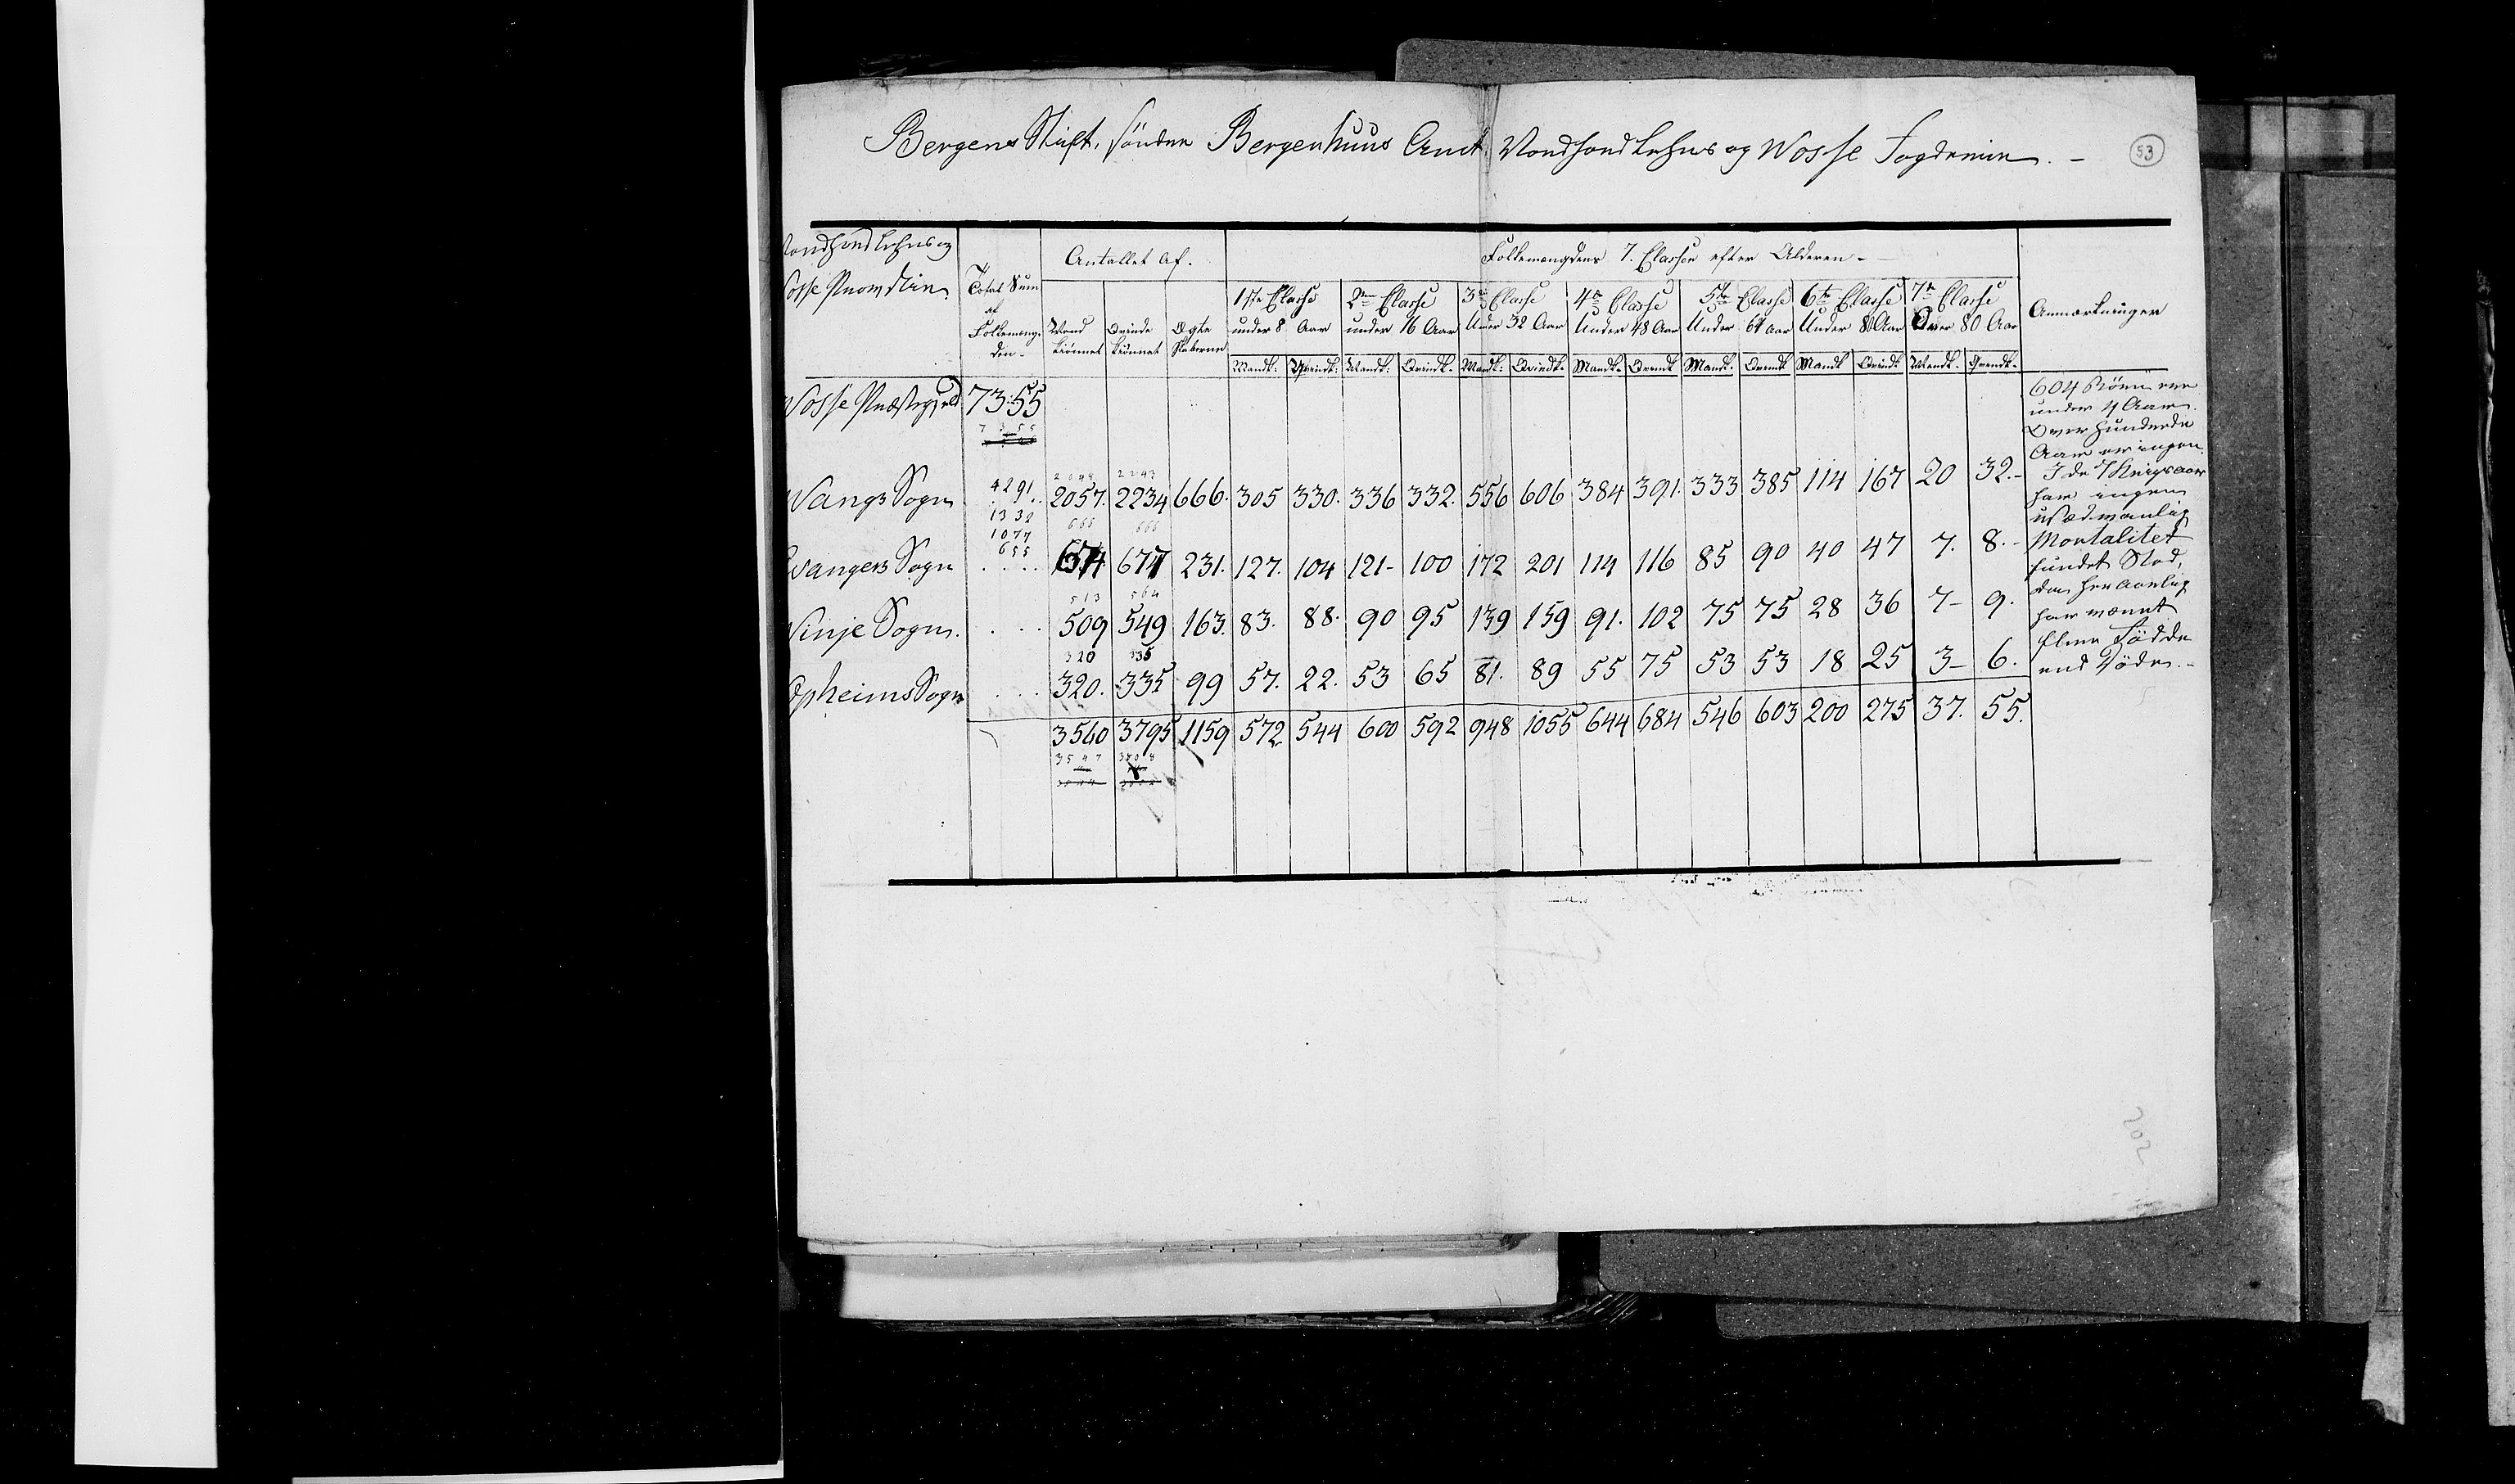 Bergens Stift, Sönder Bergenhuus Amt, Nordhordlehns og Wosse Fogderier. –
53
Nordhordlehns og
Wosse Provstie
Total Sum
af
Folkemæng-
den –
Antallet af.
Mand
kiönnet
Qvinde
kiönnet
Ægte
Folkemængdens 7. Classer efter Alderen –
1ste Classe
under 8 Aar
2den Classe
under 16 Aar
3de Classe
Under 32 Aar
4de Classe
Under 48 Aar
5te Classe
Under 64 Aar
6te Classe
Under 80 Aar
7de Classe
Over 80 Aar
Anmærkninger
Mandk. Qvindk. Mandk. Qvindk. Mandk. Qvindk. Mandk. Qvindk. Mandk. Qvindk. Mandk. Qvindk. Mandk. Qvindk.
Wosse Præstegield 7355
7355
2243
Wangs Sogn 4291 2057. 2234 666. 305 330. 336 332. 556 606 384 391. 333 385 114 167 20 32. –
1332
1077
655
666 666
Evangers Sogn 674 677 231. 127. 104 121– 100 172 201 114 116 85 90 40 47 7. 8. –
513 564
Winje Sogn. 509 549 163. 83. 88. 90 95 139 159 91. 102 75 75 28 36 7– 9.
320 335
Opheims Sogn 320. 335 99 57. 22. 53 65 81. 89 55 75 53 53 18 25 3– 6.
3560 3795 1159 572 544 600 592 948 1055 644 684 546 603 200 275 37. 55.
3547 3808
604 Börn ere
under 4 Aar.
Over hundrede
Aar er ingen.
I de 7 Krigsaar
har ingen
usædvanlig
Mortalitet
fundet Sted,
da her aarlig
har været
flere Födde
end Döde. –
502